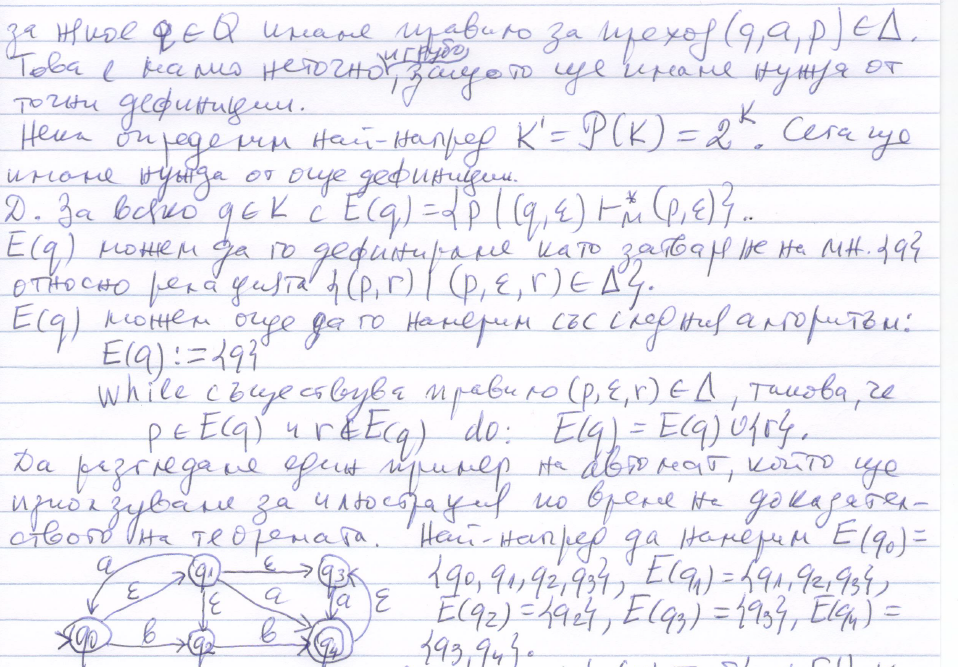 за някое q ∈ Q имаме правило за преход (q,a,p) ∈ Δ.
Това е малко неточно и грубо, защото ще имаме нужда от
точни дефиниции.
Нека определим най-напред K' = P(K) = 2^K. Сега ще
имаме нужда от още дефиниции.
D. За всяко q ∈ K с E(q) = {p | (q,ε) ⊢*_M (p,ε)}..
E(q) можем да го дефинираме като затваряне на мн. {q}
относно релацията {(p,r) | (p,ε,r) ∈ Δ}.
E(q) можем още да го намерим със следния алгоритъм:
E(q) := {q}
while съществува правило (p,ε,r) ∈ Δ, такова, че
p ∈ E(q) и r ∉ E(q) do: E(q) = E(q) ∪ {r}.
Да разгледаме един пример на автомат, който ще
използуваме за илюстрация по време на доказател-
ството на теоремата. Най-напред да намерим E(q0) =
{q0, q1, q2, q3}, E(q1) = {q1, q2, q3},
E(q2) = {q2}, E(q3) = {q3}, E(q4) =
{q3, q4}.
a q1 ε q3
ε ε a a ε
q0 b q2 b q4